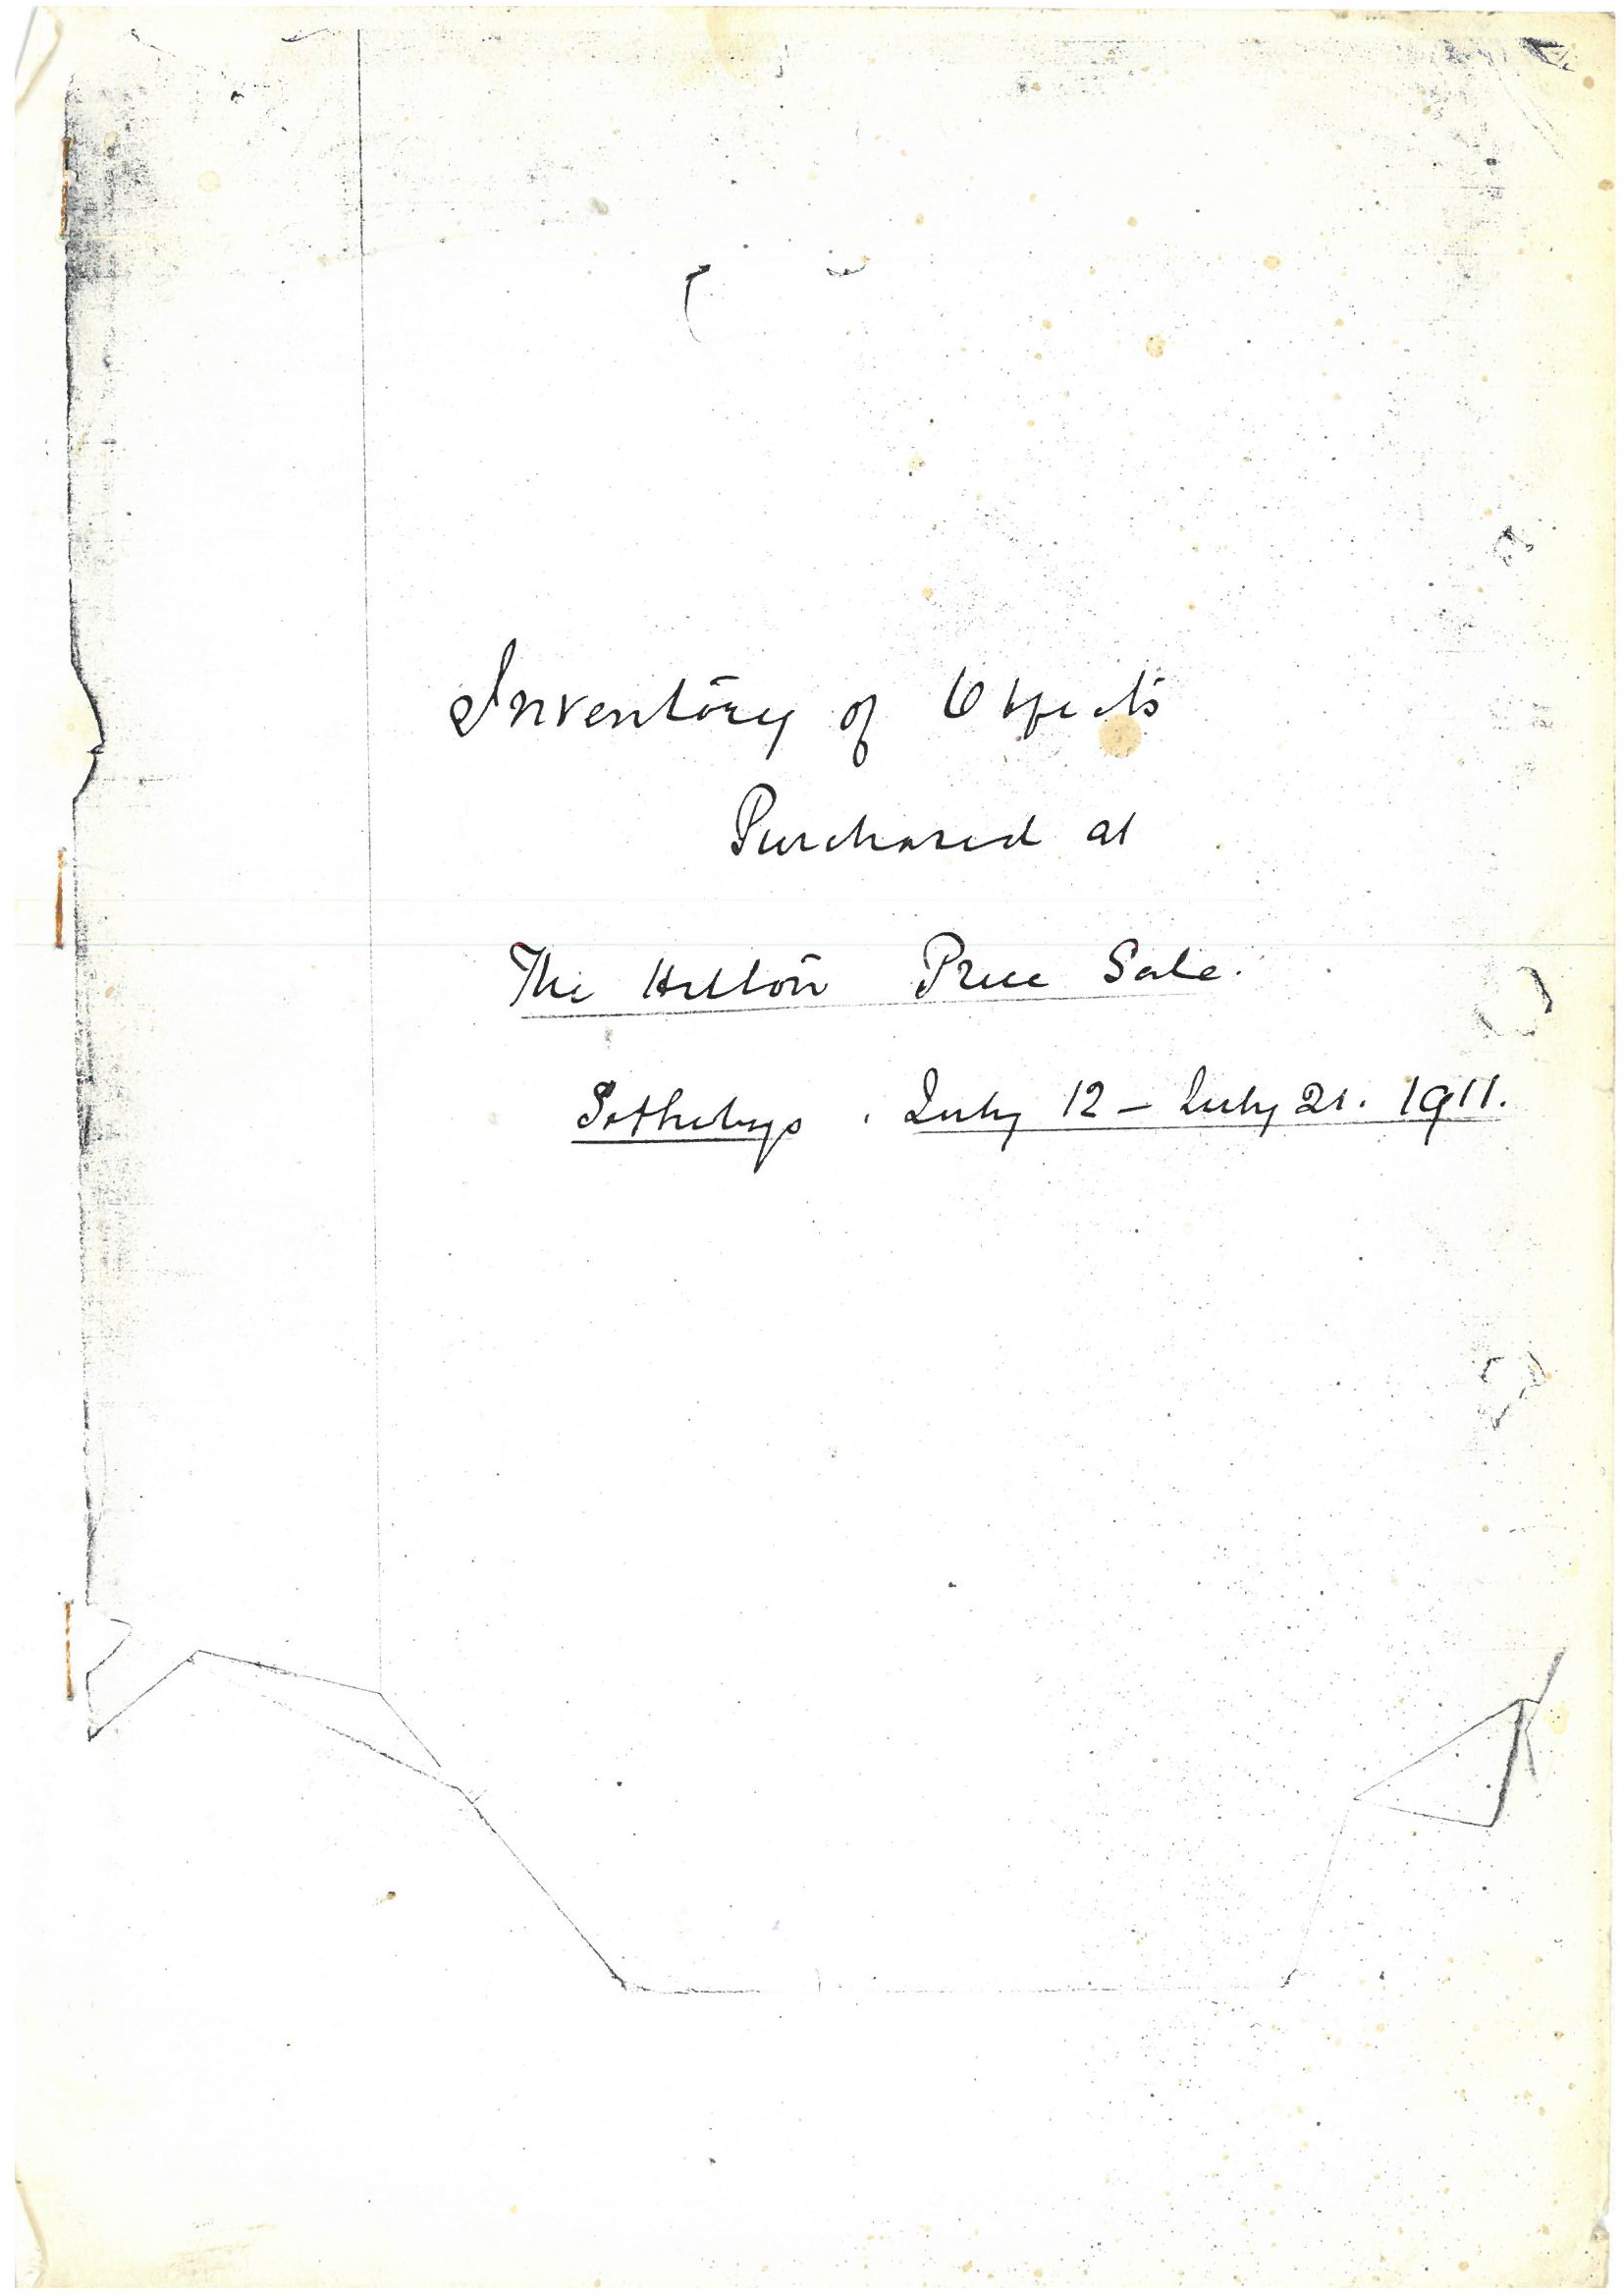 Inventory of Objects
Purchased at
The Hilton Price Sale.
Sothebys. July 12 – July 21. 1911.